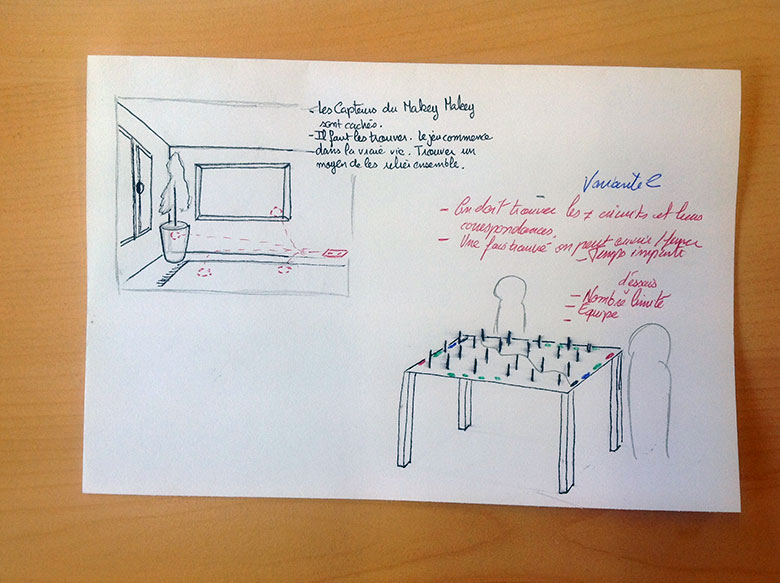 - Les Capteurs du Makey Makey
sont cachés.
- Il faut les trouver. Le jeu commence
dans la vraie vie. Trouver un
moyen de les relier ensemble.
Variante 2
- On doit trouver les 7 circuits et leurs
correspondances.
- Une fois trouvé on peut
- Temps imparti
d'essais
- Nombre limité
- Equipe
-